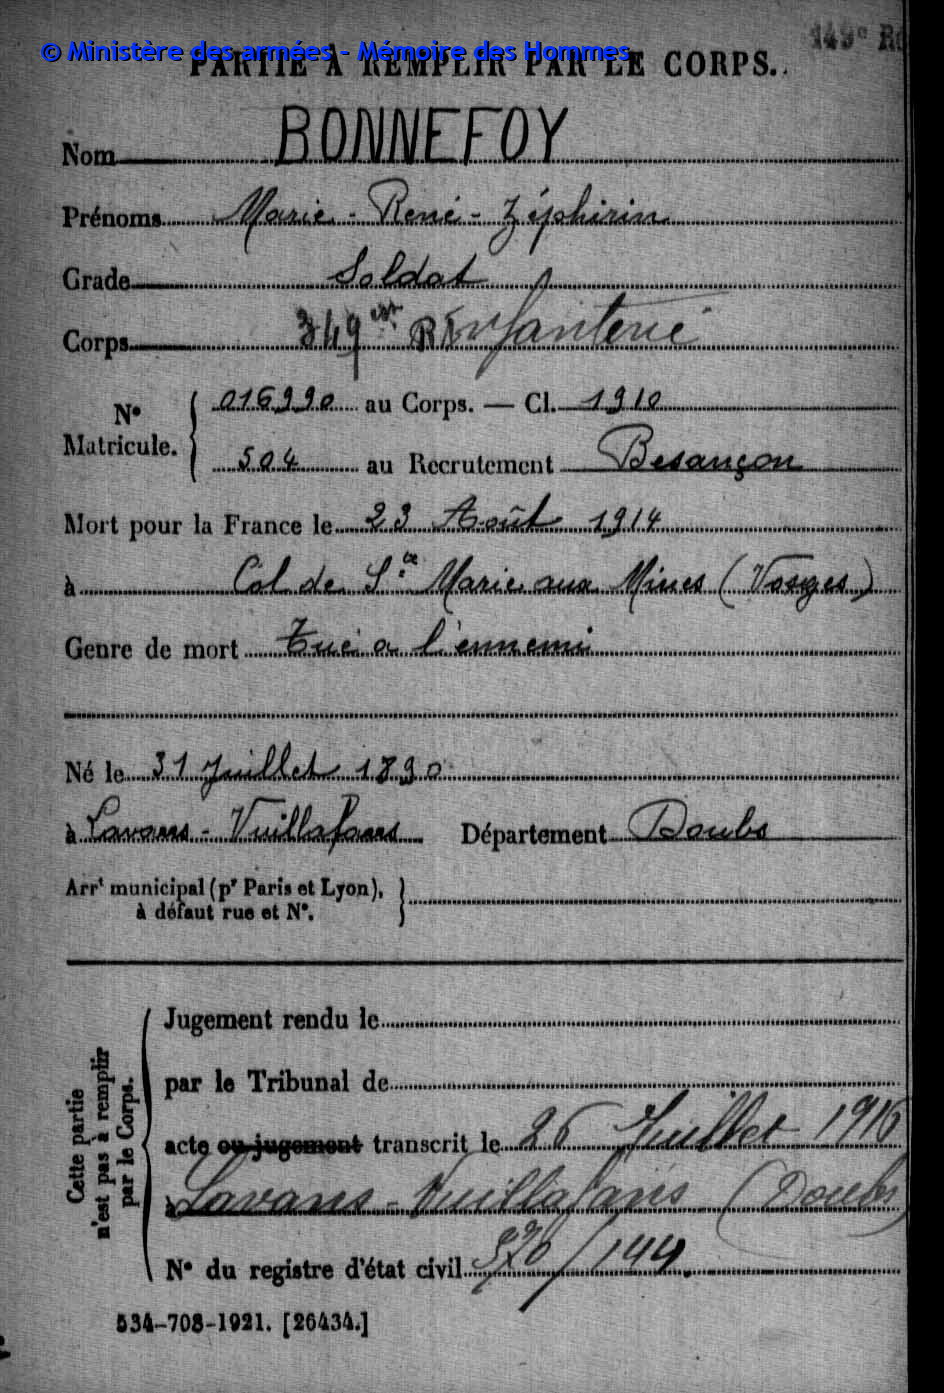 149e R
© Ministère des armées - Mémoire des Hommes
PARTIE À REMPLIR PAR LE CORPS.
Nom BONNEFOY
Prénoms Marie - René - Zéphirin
Grade Soldat
Corps 349e R Infanterie
N° Matricule. 016990 au Corps. — Cl. 1910
504 au Recrutement Besançon
Mort pour la France le 23 Août 1914
à Col de Ste Marie aux Mines (Vosges)
Genre de mort Tué a l'ennemi
Né le 31 Juillet 1890
à Lavans - Vuillafans Département Doubs
Arrt municipal (pr Paris et Lyon),
à défaut rue et N°.
Cette partie n'est pas à remplir par le Corps.
Jugement rendu le
par le Tribunal de
acte ou jugement transcrit le 26 Juillet 1916
à Lavans - Vuillafans (Doubs)
N° du registre d'état civil /144.
534-708-1921. [26434.]